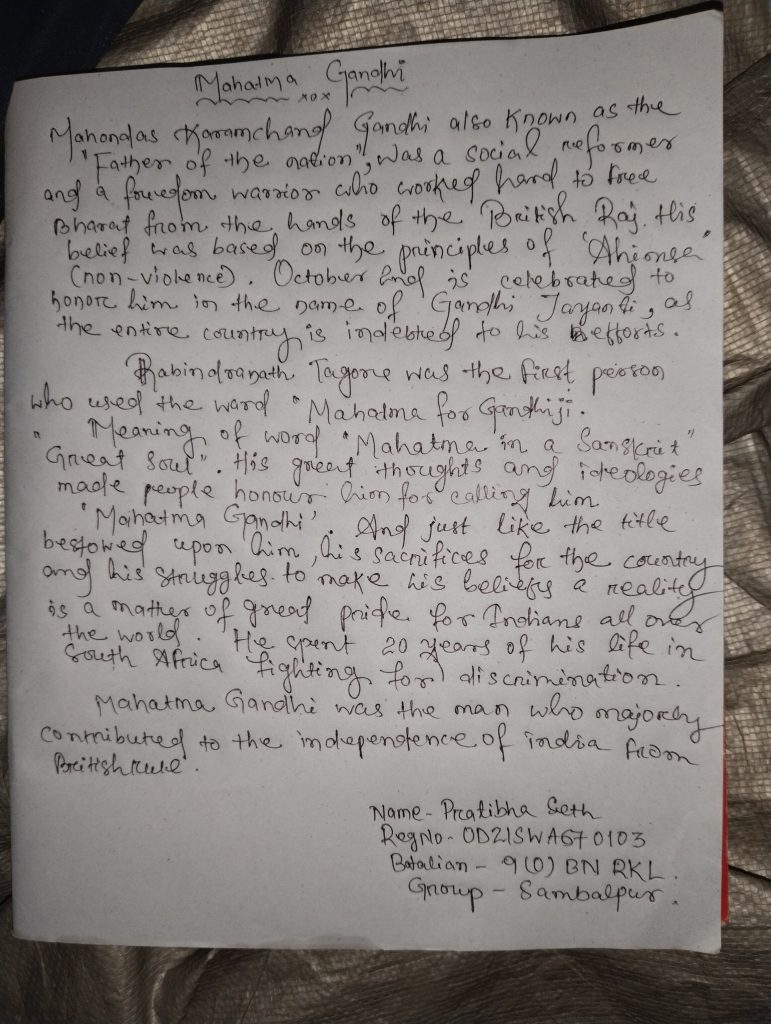 Mahatma Gandhi
xox
Mahondas Karamchand Gandhi also known as the
"Father of the nation", was a social reformer
and a freedom warrior who worked hard to free
Bharat from the hands of the British Raj. His
belief was based on the principles of 'Ahinsa'
(non-violence). October 2nd is celebrated to
honore him in the name of Gandhi Jayanti, as
the entire country is indebted to his efforts.
Rabindranath Tagore was the first person
who used the ward "Mahatma for Gandhiji.
Meaning of word "Mahatma in a Sanskrit"
"Great Soul". His great thoughts and ideologies
made people honour him for calling him
'Mahatma Gandhi'. And just like the title
bestowed upon him, his sacrifices for the country
and his struggles to make his beliefs a reality
is a matter of great pride for Indians all over
the world. He spent 20 years of his life in
South Africa fighting for discrimination.
Mahatma Gandhi was the man who majorly
contributed to the independence of india from
British rule.
Name - Pratibha Seth
Reg No - OD21SWA670103
Batalian - 9(O) BN RKL.
Group - Sambalpur.